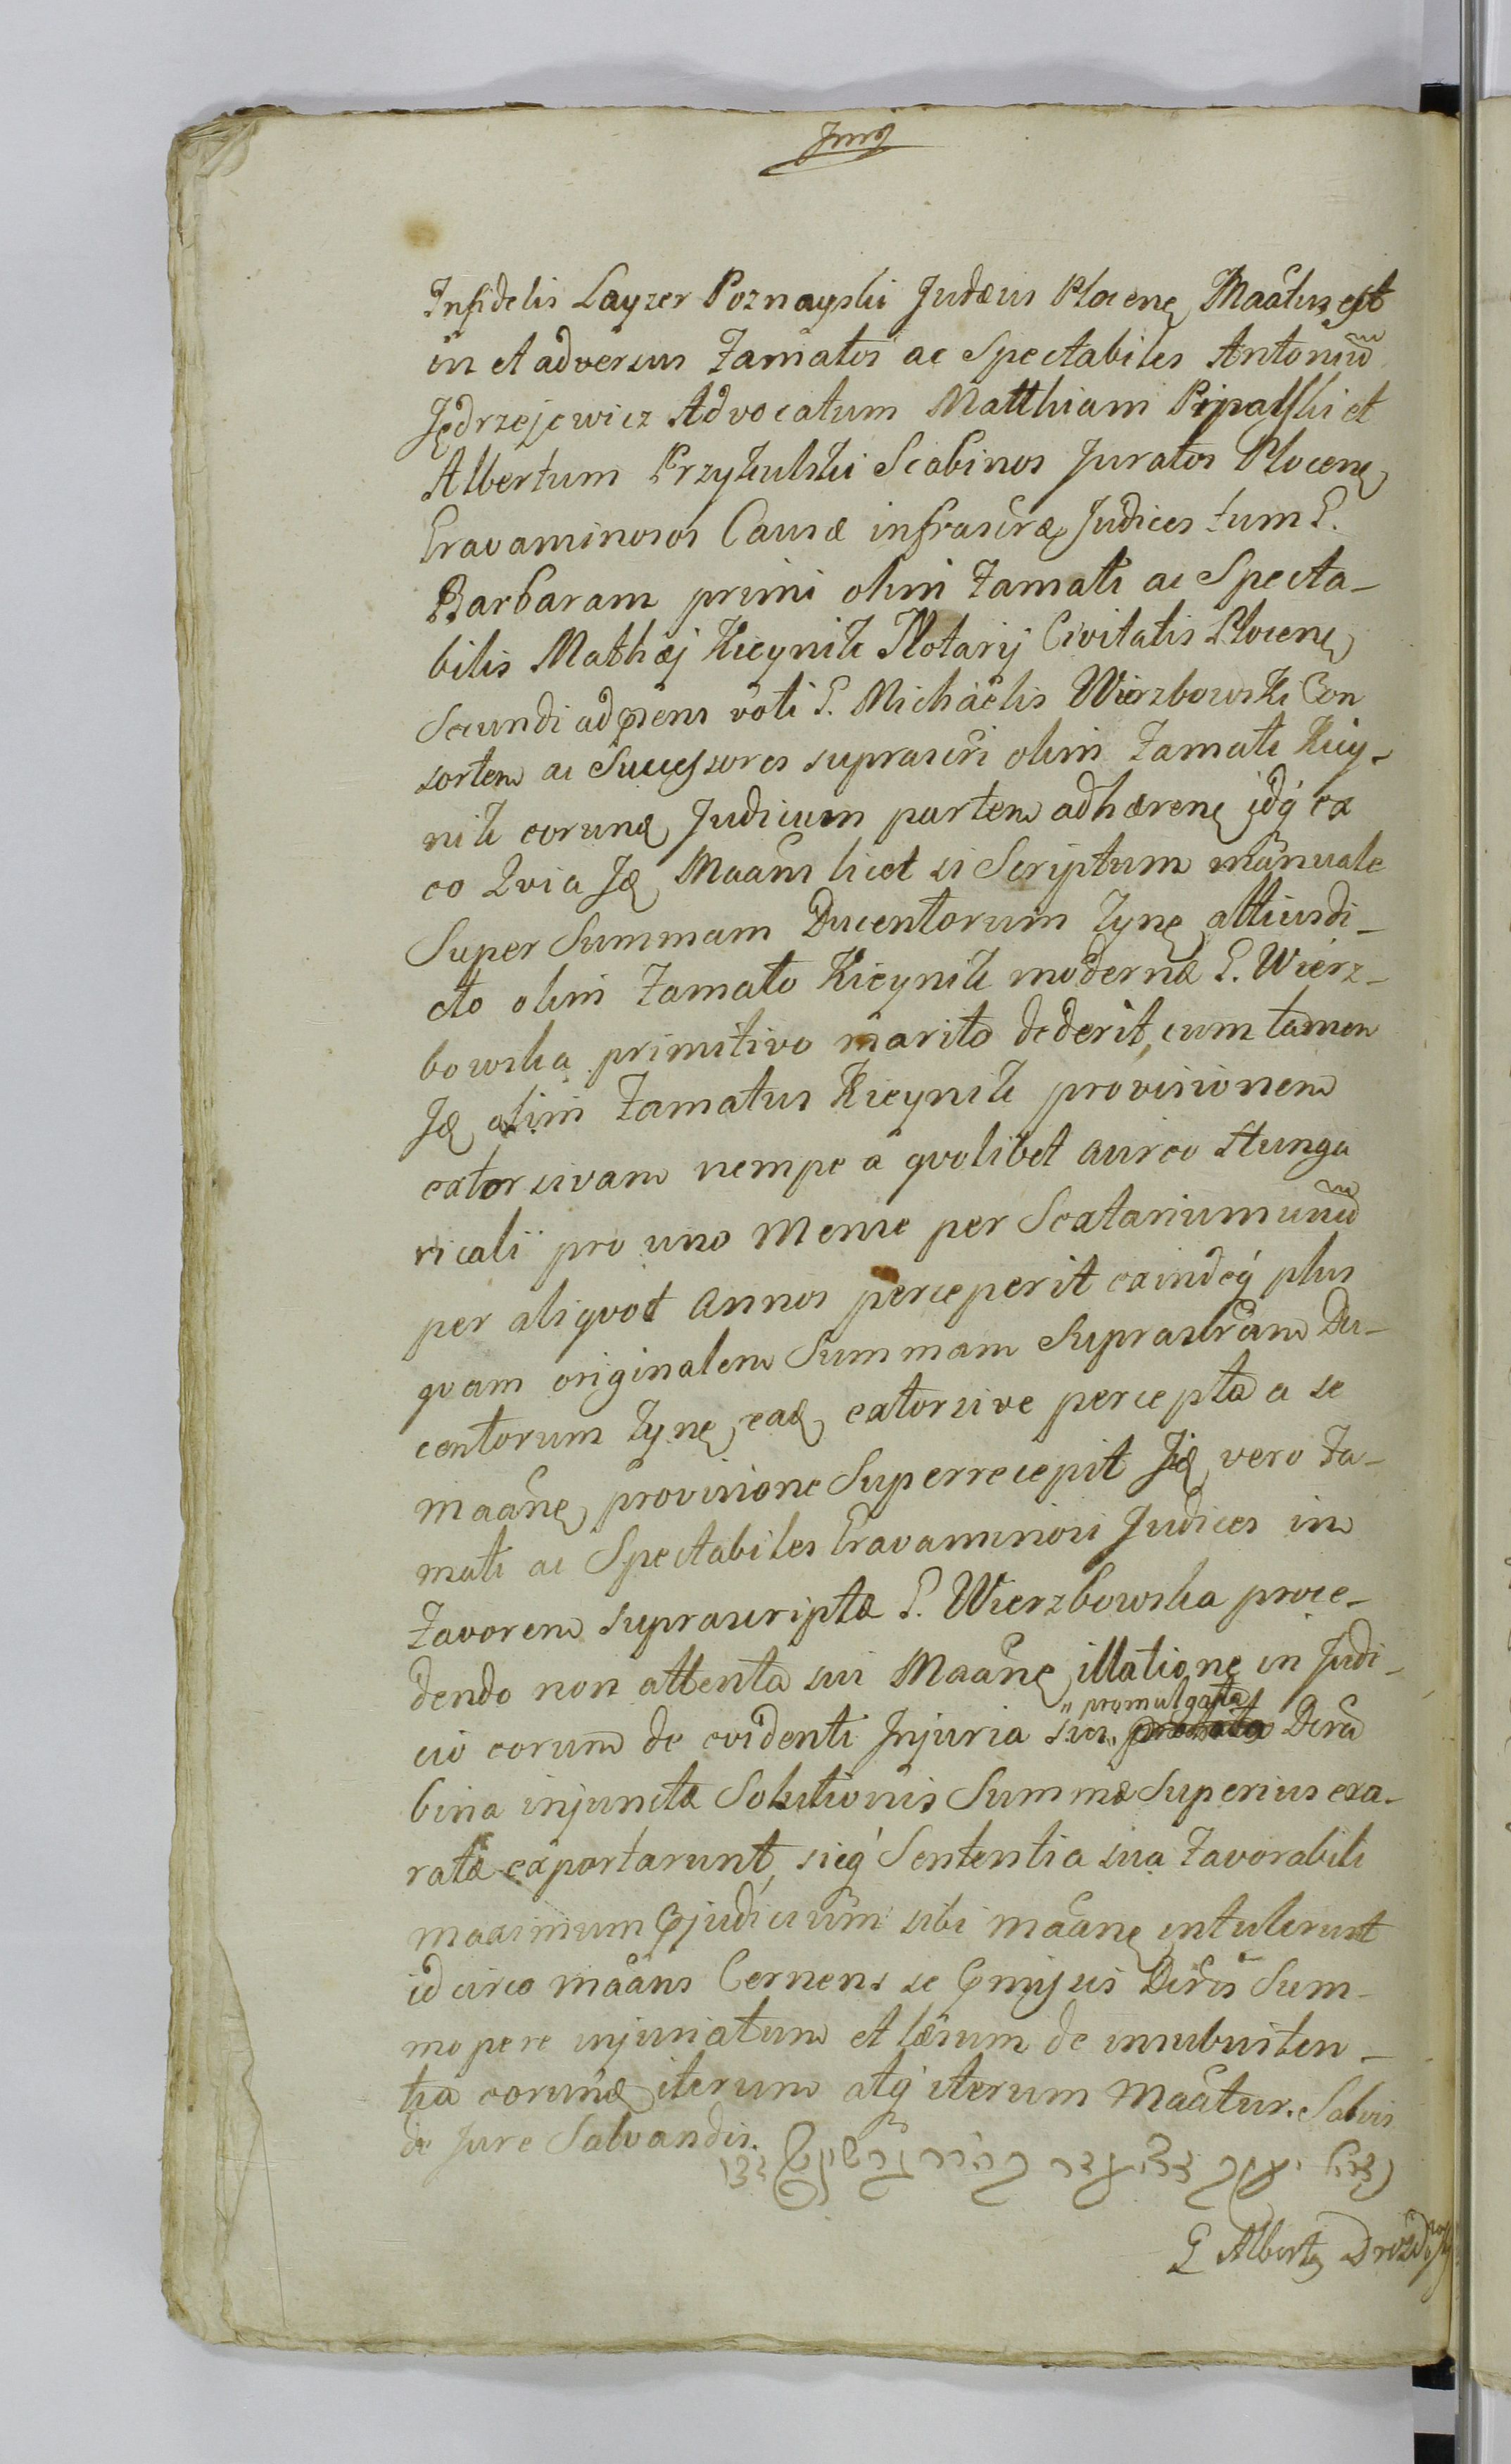 Infidelis Layzer Poznayski Judæus Plocens Maãtus est
in et adversus Famatos ac Spectabiles Antoniũ
Jędrzejewicz Advocatum Matthiam Pipalski et
Albertum Przykulski Scabinos Juratos Plocens
Gravaminosos Causæ infrascræ Judices tum G.
Barbaram primi olim Famati ac Specta-
bilis Mathæj Kicynik Notarij Civitatis Plocens
Secundi ad præsens voti G. Michaelis Wierzbowski Con
sortem ac Successores suprascri olim Famati Kicy-
nik eorumq Judicum partem adhærens idq́ ex
eo Qvia Jd Maans licet si Scriptum manuale
Super Summam Ducentorum Tyns attiusdi-
cto olim Famato Kicynik modernæ G. Wierz-
bowska primitivo marito dederit, cum tamen
Jd olim Famatus Kicynik provisionem
extorsivam nempe a qvolibet aureo Hunga
ricali pro uno Mense per Sextarium unũ
per aliqvot Annos perceperit exindeq́ plus
qvam originalem Summam Suprascram Du-
centorum Tyns, ead extorsive percepta a se
Maans provisione Superrecepit Jid vero Fa-
mati ac Spectabiles Gravaminosi Judices in
Favorem suprascriptæ G. Wierzbowska proce-
dendo non attenta sui Maans illatione in Judi-
cio eorum de evidenti Injuria sui „ promulgata Dcra
bina injunctæ Solutionis Summæ Superius exa-
ratæ exportarunt, sicq́ Sententia sua Favorabili
maximum præjudicium sibi maans intulerunt
idcirco maans Cernens se præmissis Dcris Sum-
mopere injuriatum et læsum de insubsisten-
tia eorumd iterum atq́ iterum Maatur. Salvis
de Jure Salvandis.
G Albertus